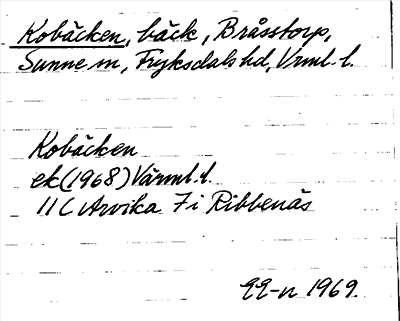 Kobäcken, bäck, Bråsstorp,
Sunne sn, Fryksdals hd, Vrml. l.
Kobäcken
ek (1968) Värml. l.
11 C Arvika 7 i Ribbenäs
1969.